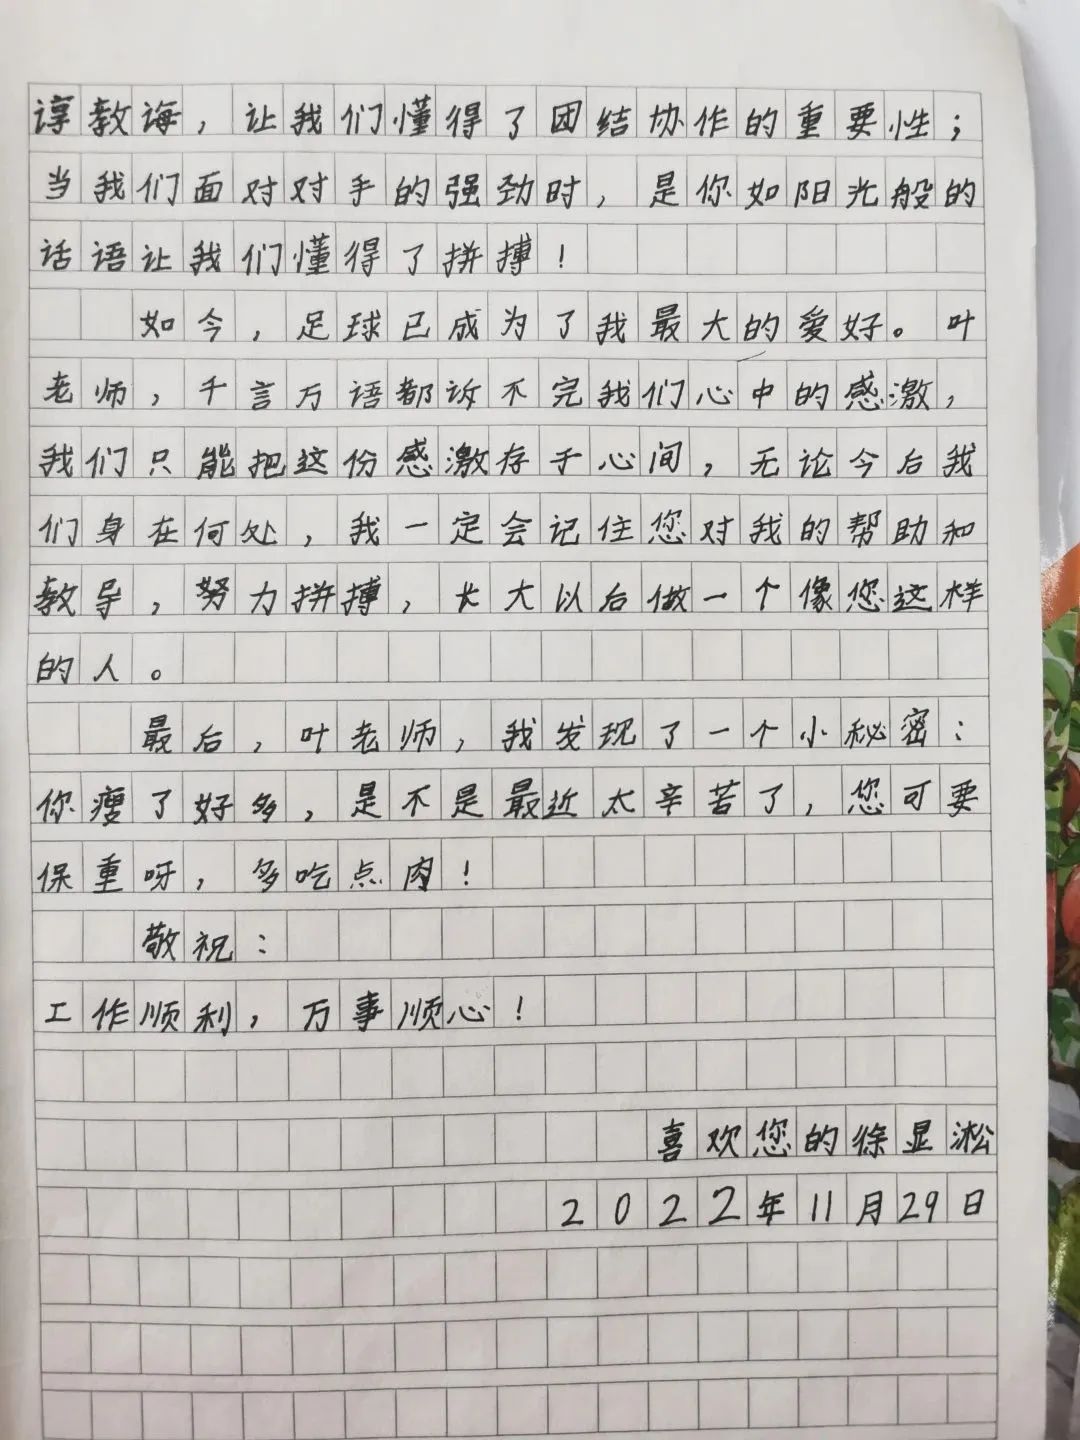 谆教诲，让我们懂得了团结协作的重要性；
当我们面对对手的强劲时，是你如阳光般的
话语让我们懂得了拼搏！
如今，足球已成为了我最大的爱好。叶
老师，千言万语都诉不完我们心中的感激，
我们只能把这份感激存于心间，无论今后我
们身在何处，我一定会记住您对我的帮助和
教导，努力拼搏，长大以后做一个像您这样
的人。
最后，叶老师，我发现了一个小秘密：
你瘦了好多，是不是最近太辛苦了，您可要
保重呀，多吃点肉！
敬祝：
工作顺利，万事顺心！
喜欢您的徐显淞
2022年11月29日